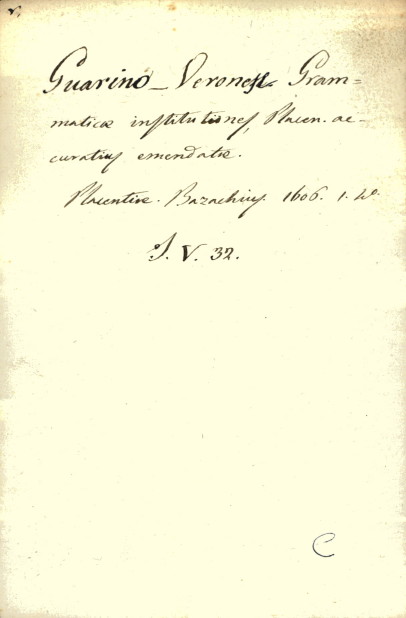 v.
Guarino_Veronese Gram=
maticæ institutiones, Placen. ac-
curatius emendatæ.
Placentiæ. Bazachius. 1606. 1. 4º
S. V. 32.
C